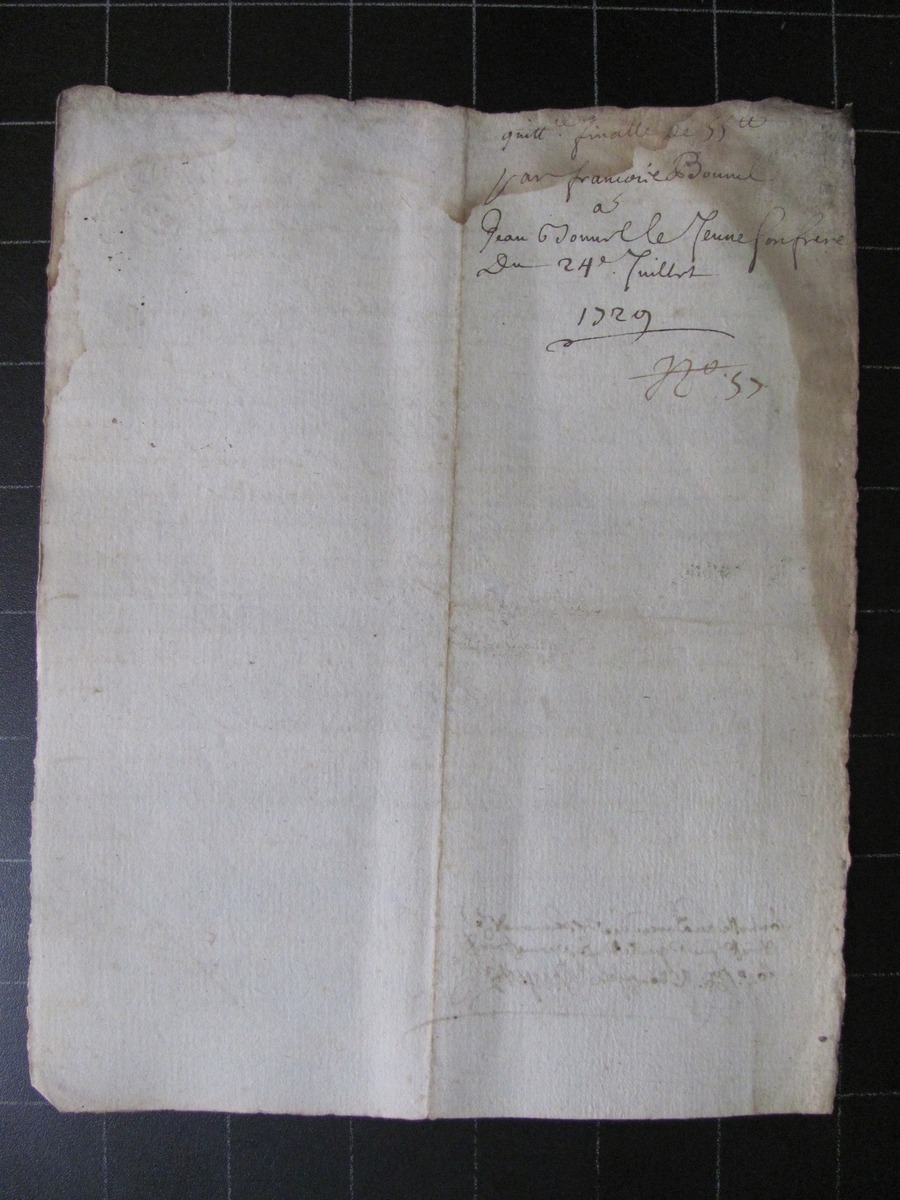 quitt.ce finalle de 55 tt
par francoise Bonnel
a
Jean Bonnel le Jeune son frere
Du 24e. Juillet
1729
No. 57